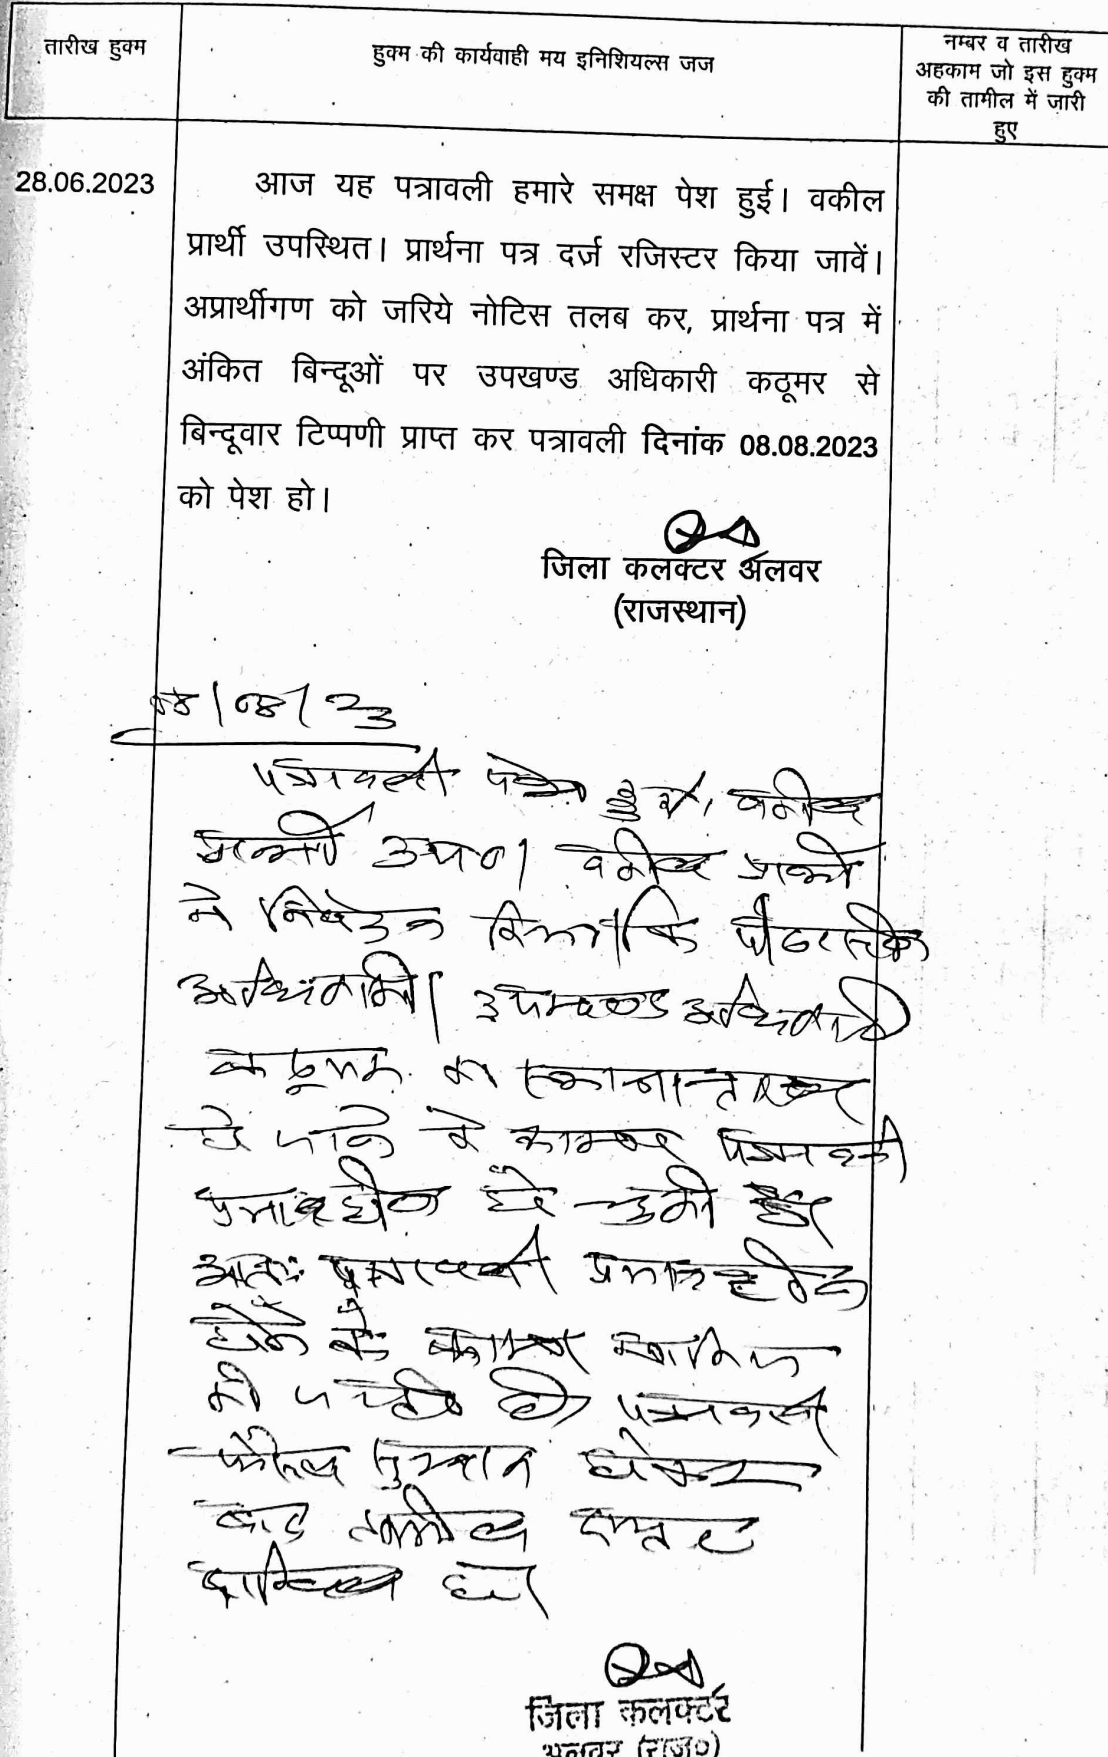 तारीख हुक्म
हुक्म की कार्यवाही मय इनिशियल्स जज
नम्बर व तारीख
अहकाम जो इस हुक्म
की तामील में जारी
हुए
28.06.2023
आज यह पत्रावली हमारे समक्ष पेश हुई। वकील
प्रार्थी उपस्थित। प्रार्थना पत्र दर्ज रजिस्टर किया जावें।
अप्रार्थीगण को जरिये नोटिस तलब कर, प्रार्थना पत्र में
अंकित बिन्दूओं पर उपखण्ड अधिकारी कठूमर से
बिन्दूवार टिप्पणी प्राप्त कर पत्रावली दिनांक 08.08.2023
को पेश हो।
जिला कलक्टर अलवर
(राजस्थान)
08/08/23
पत्रावली पेश हुई, वकील
प्रार्थी उप०। वकील प्रार्थी
ने निवेदन किया कि पीठासीन
अधिकारी उपखण्ड अधिकारी
कठूमर का स्थानान्तरण
हो जाने के कारण पत्रावली
प्रभावहीन हो चुकी है।
अतः पत्रावली प्रभावहीन
होने के कारण खारिज
की जाती है। पत्रावली
फैसल शुमार होकर
बाद तकमील
दाखिल हो।
जिला कलक्टर
अलवर (राज०)